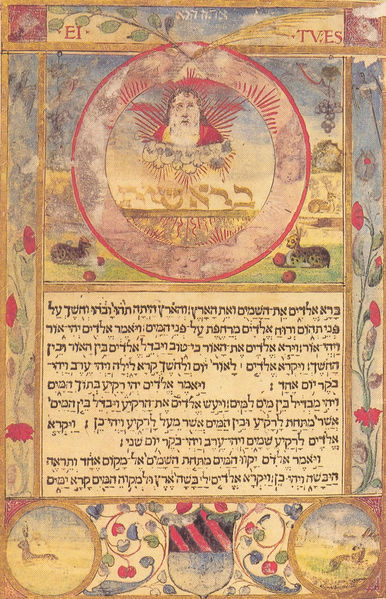 EI TVES
בראשית
ברא אלדים את השמים ואת הארץ׃ והארץ היתה תהו ובהו וחשך על
פני תהום ורוח אלדים מרחפת על פני המים׃ ויאמר אלדים יהי אור
ויהי אור׃ וירא אלדים את האור כי טוב ויבדל אלדים בין האור ובין
החשך׃ ויקרא אלדים לאור יום ולחשך קרא לילה ויהי ערב ויהי
בקר יום אחד׃ ויאמר אלדים יהי רקיע בתוך המים
ויהי מבדיל בין מים למים׃ ויעש אלדים את הרקיע ויבדל בין המים
אשר מתחת לרקיע ובין המים אשר מעל לרקיע ויהי כן׃ ויקרא
אלדים לרקיע שמים ויהי ערב ויהי בקר יום שני׃
ויאמר אלדים יקוו המים מתחת השמים אל מקום אחד ותראה
היבשה ויהי כן׃ ויקרא אלדים ליבשה ארץ ולמקוה המים קרא ימים